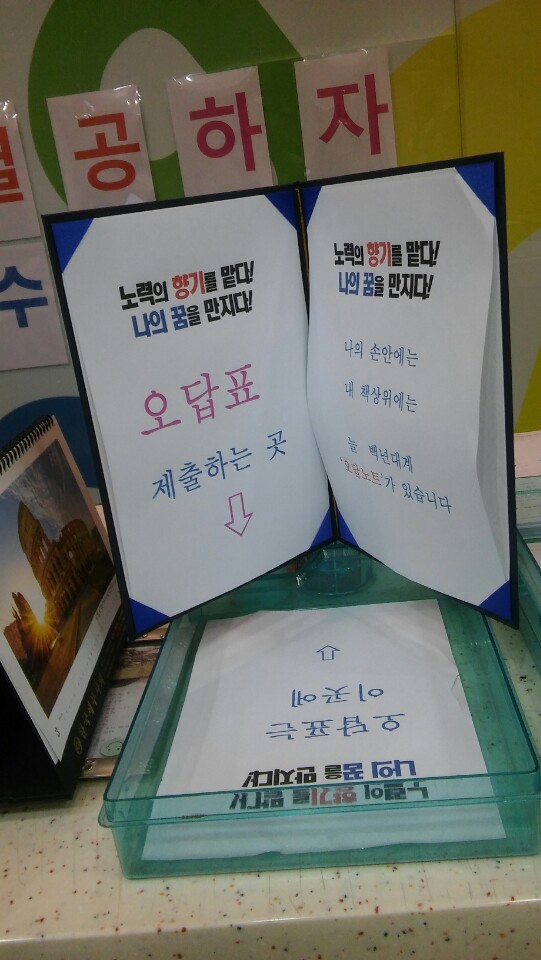 공하자
수
노력의 향기를 맡다!
나의 꿈을 만지다!
오답표
제출하는 곳
노력의 향기를 맡다!
나의 꿈을 만지다!
나의 손안에는
내 책상위에는
늘 백년대계
'오답노트'가 있습니다
노력의 향기를 맡다!
나의 꿈을 만지다!
오답표는
이곳에
3